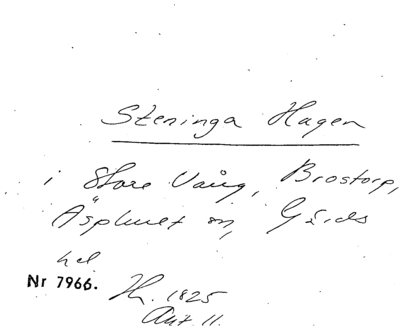 Steninga Hagen
i Store Vång, Brostorp,
Äsphult sn, Gärds
hd
Nr 7966. Hz. 1825
Akt 11.